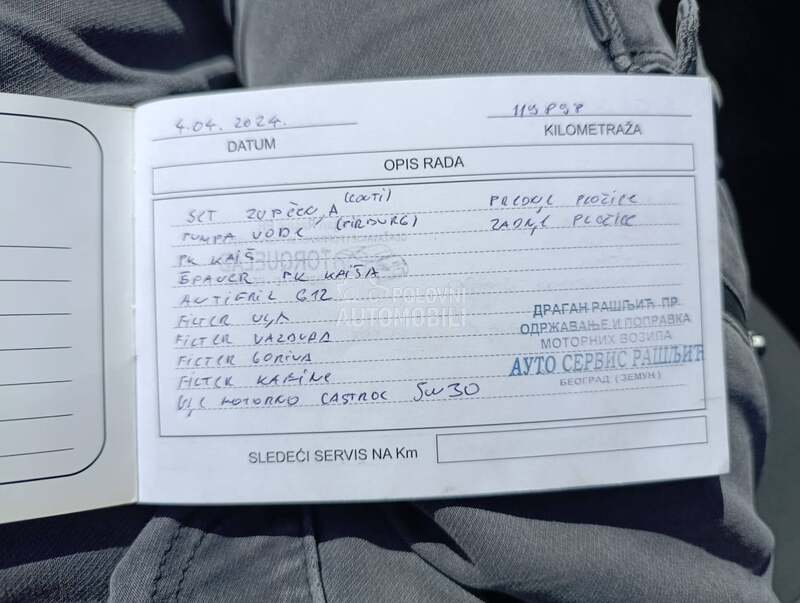 4.04. 2024.
119898
DATUM
KILOMETRAŽA
OPIS RADA
SET ZUPČENJA (CONTI)
PREDNJE PLOČICE
PUMPA VODE (PIRBURG)
ZADNJE PLOČICE
PK KAIŠ
ŠPANER PK KAIŠA
ANTIFRIZ G12
FILTER ULJA
FILTER VAZDUHA
FILTER GORIVA
FILTER KABINE
ULJE MOTORNO CASTROL 5W30
POLOVNI
AUTOMOBILI
ДРАГАН РАШЉИЋ ПР
ОДРЖАВАЊЕ И ПОПРАВКА
МОТОРНИХ ВОЗИЛА
АУТО СЕРВИС РАШЉИЋ
БЕОГРАД (ЗЕМУН)
SLEDEĆI SERVIS NA Km